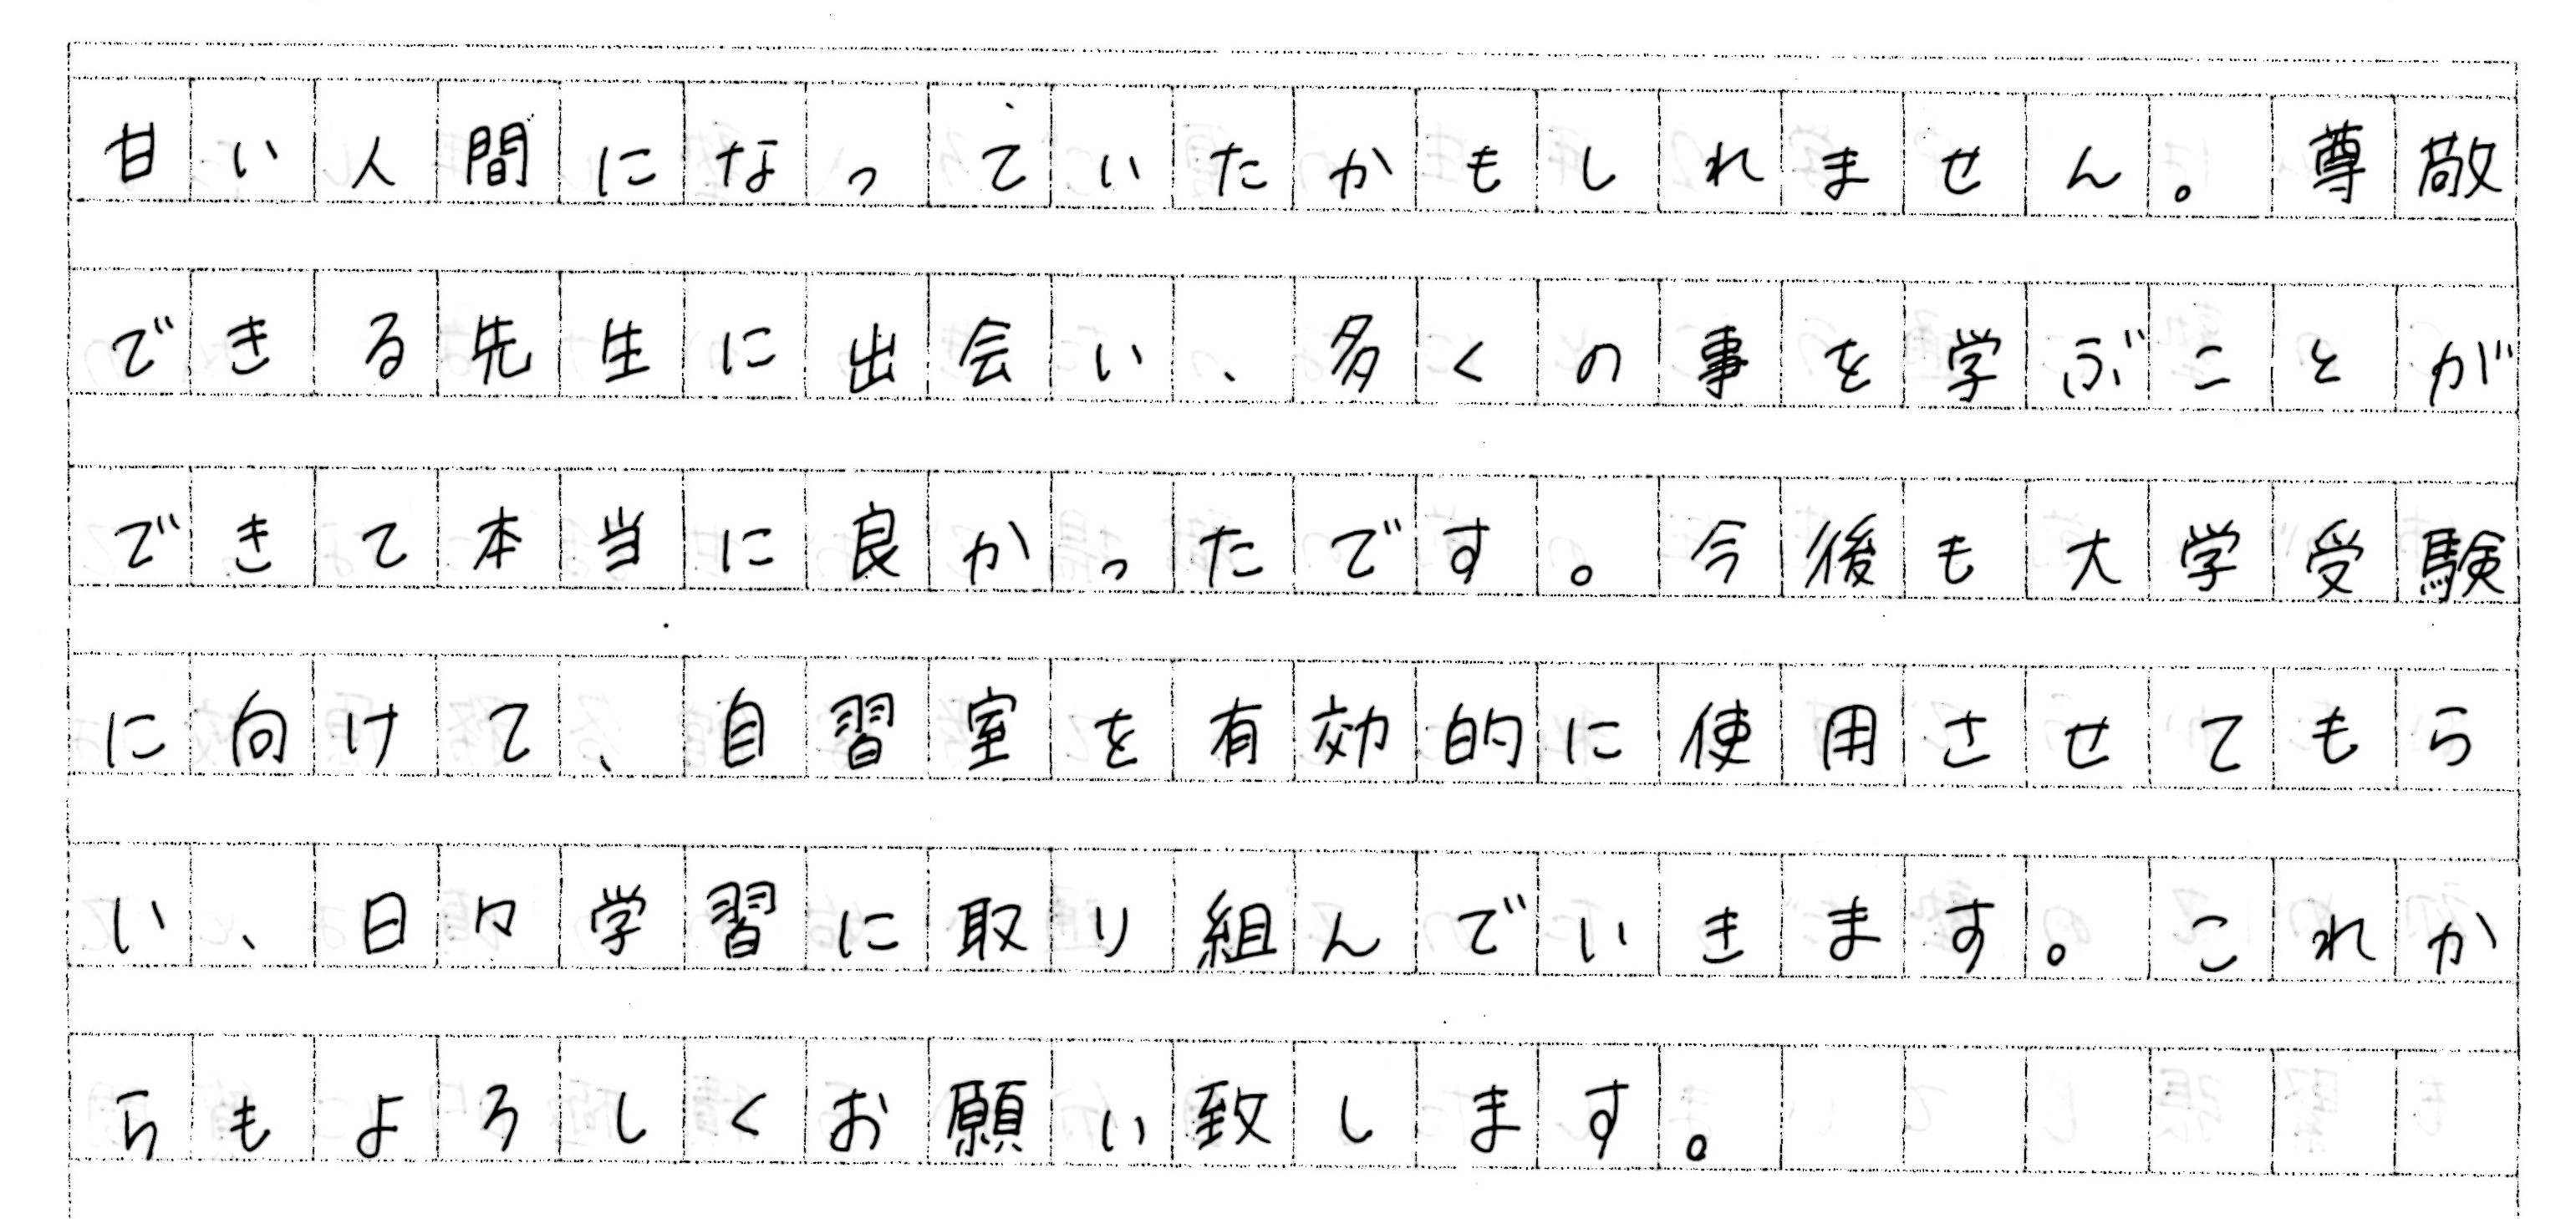 甘い人間になっていたかもしれません。尊敬
できる先生に出会い、多くの事を学ぶことが
できて本当に良かったです。今後も大学受験
に向けて、自習室を有効的に使用させてもら
い、日々学習に取り組んでいきます。これか
らもよろしくお願い致します。